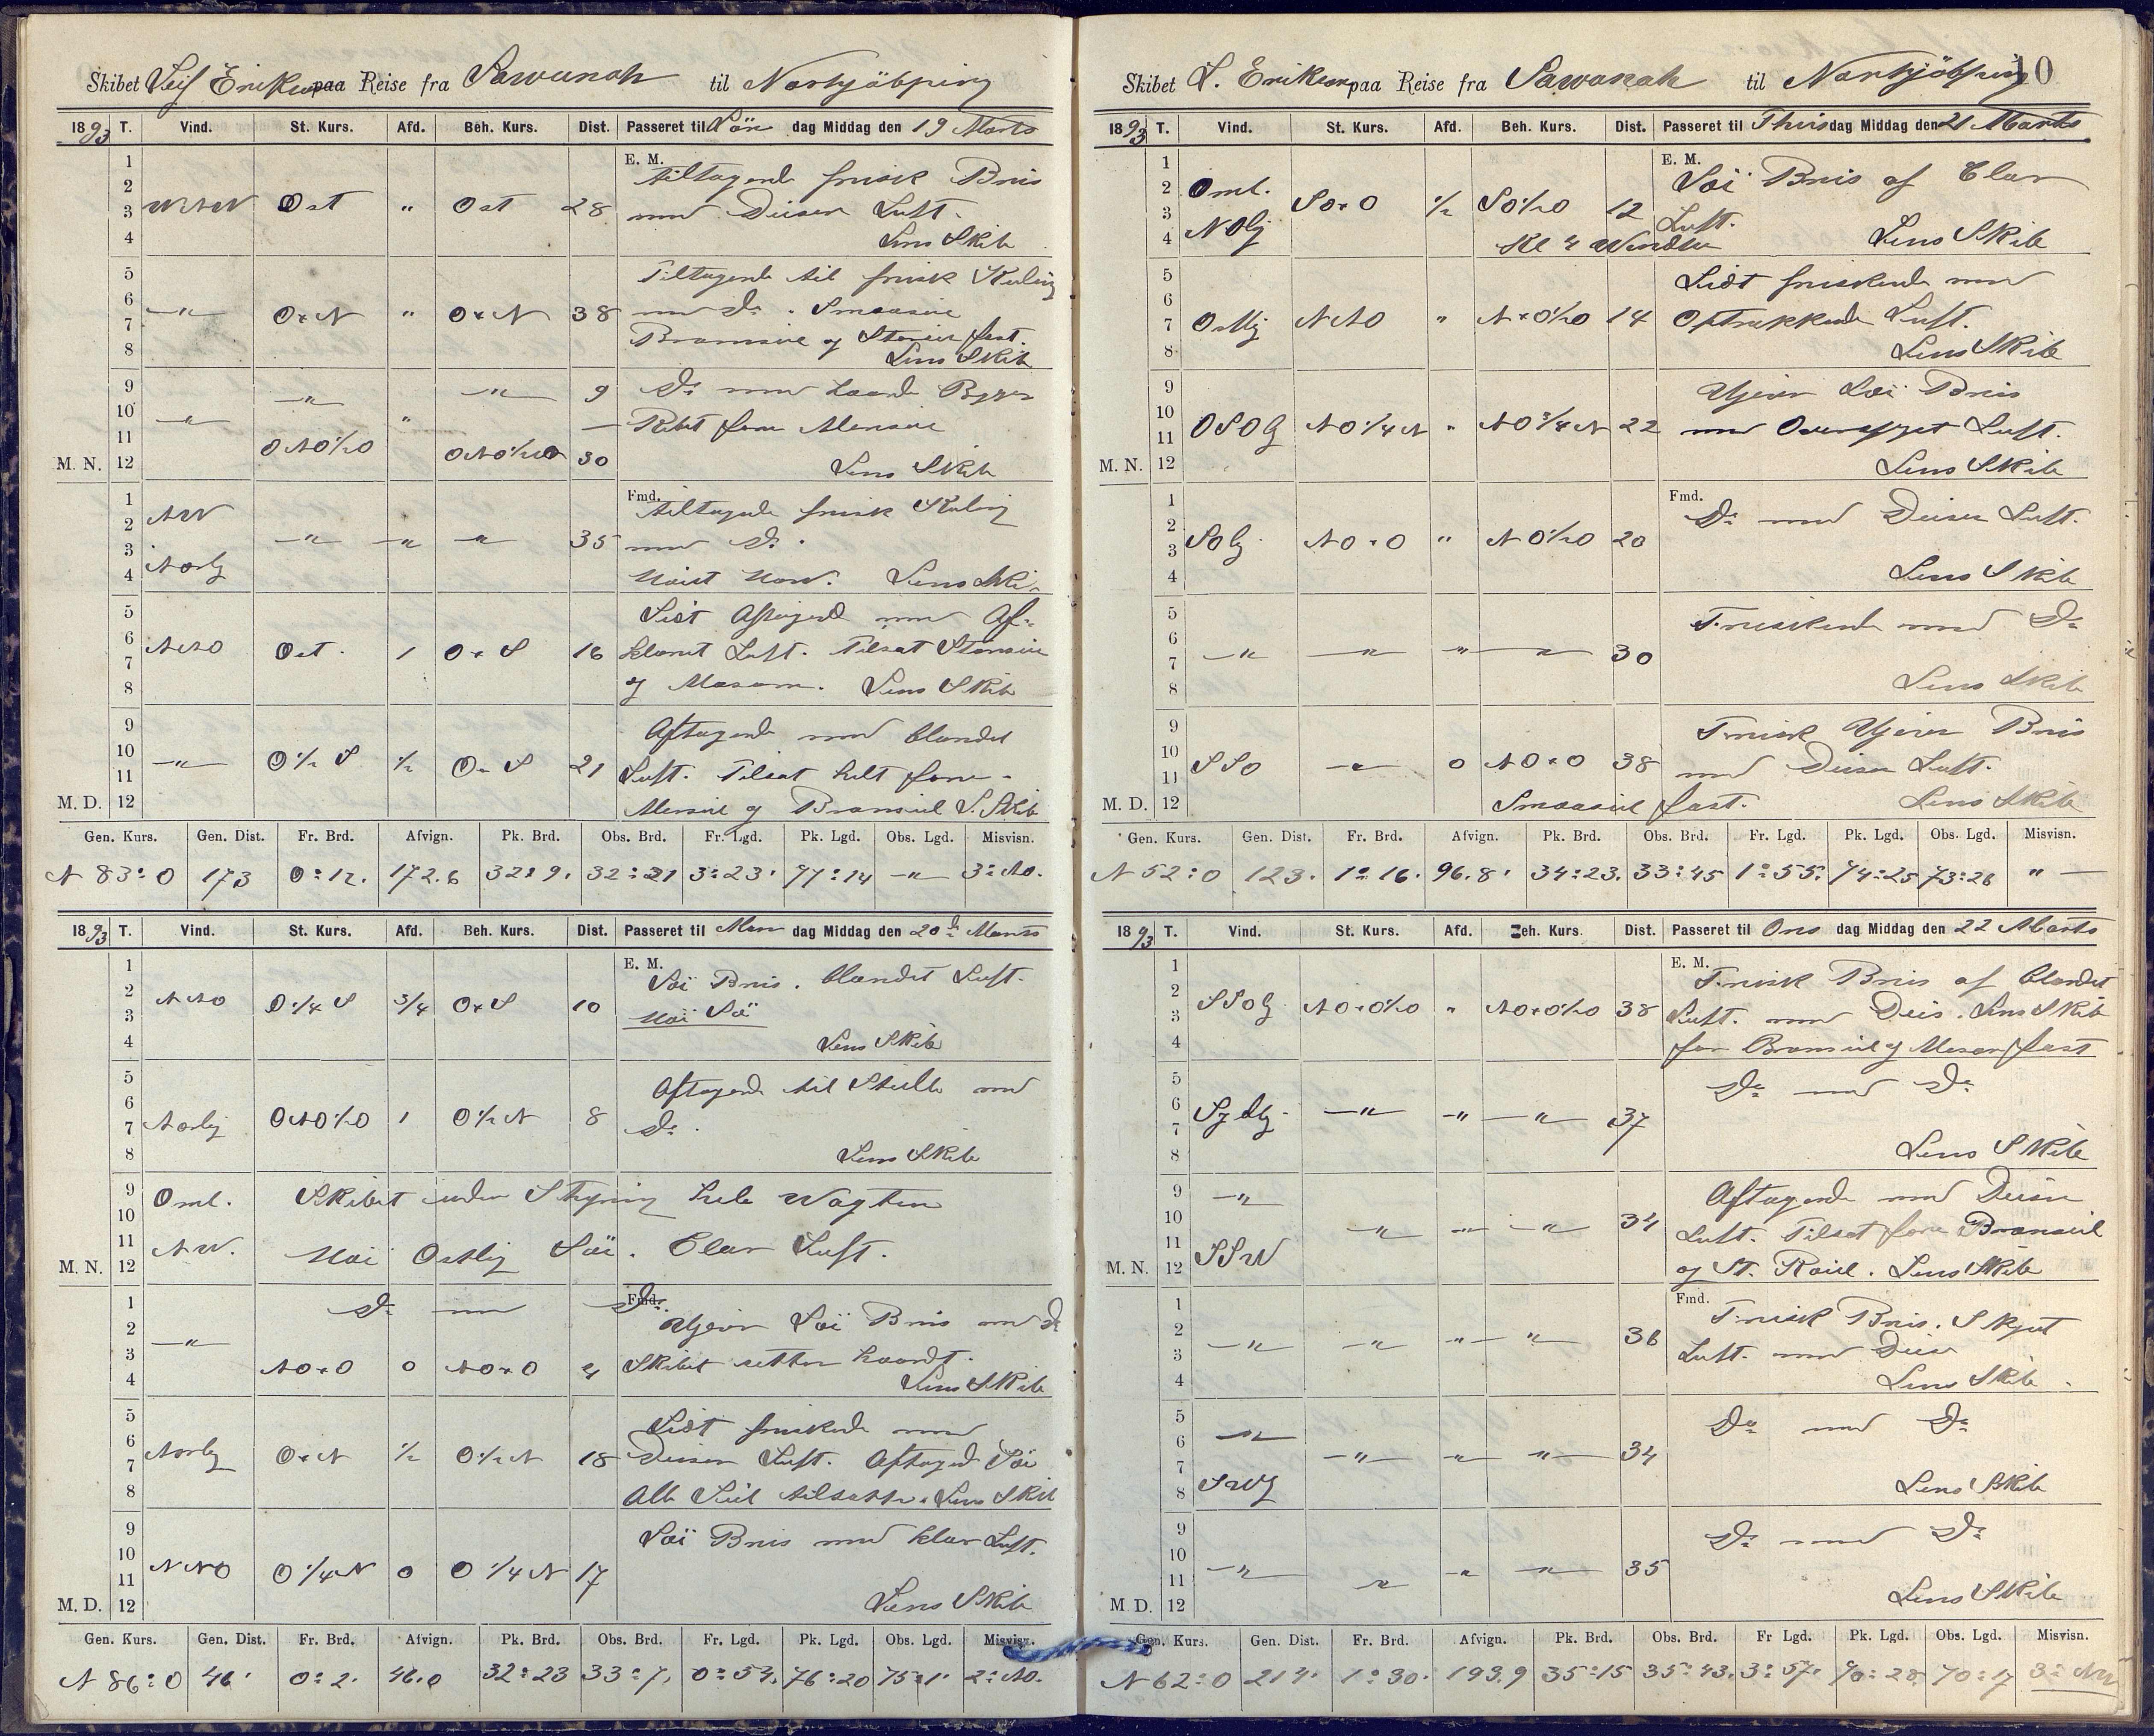 Skibet Leif Erikson paa Reise fra Sawanah til Norkjöbping
1893 T. Vind. St. Kurs. Afd. Beh. Kurs. Dist. Passeret til Sön dag Middag den 19 Marts
E. M.
1 tiltagende frisk Bris
2 med Diisen Luft.
3 WNW Ost " Ost 28
4 Lens Skib
5 Tiltagende til frisk Kuling
6 med Do. Smaaseil
7 —"— O+N " O+N 38 Bramseil og Storseil fast.
8 Lens Skib
9 —"— —"— 9 Do med haarde Byger
10 —"— " — Rebet forre Merseil
11 ONO½O ONO½O 30
M. N. 12 Lens Skib
Fmd.
1 NW tiltagende frisk Kuling
2 —"— —"— —"— 35 med Do.
3 Norlg
4 Lens Skib
5 Lidt Aftagend med Af-
6 NNO Ost. 1 O+S 16 klaret Luft. Tilsat Storseil
7
8 og Mesan. Lens Skib
9 Aftagende med blandet
10 —"— O½S ½ O+S 21 Luft. Tilsat helt forre-
11
M. D. 12 Merseil og Bramseil L. Skib
Gen. Kurs. Gen. Dist. Fr. Brd. Afvign. Pk. Brd. Obs. Brd. Fr. Lgd. Pk. Lgd. Obs. Lgd. Misvisn.
N 83° O 173 0° 12. 172.6 32° 9. 32° 21 3° 23' 77° 14 —"— 3° NO.
1893 T. Vind. St. Kurs. Afd. Beh. Kurs. Dist. Passeret til Man dag Middag den 20de Marts
E. M.
1 Löi Bris. blandet Luft.
2 NNO O¼S ¾ O+S 10 Höi Sö
3
4 Lens Skib
5 Aftagende til Stille med
6 Norlig ONO½O 1 O½N 8 Do.
7
8 Lens Skib
9 Oml. Skibet uden Styring hele Wagten
10
11 NW. Höi Ostlig Söi. Clar Luft.
M. N. 12
Fmd.
1 Do med Do.
2 —"— Ujevn Löi Bris med Do
3 NO+O 0 NO+O 4 Skibet setter haardt.
4 Lens Skib
5 Lidt friskende med
6 Norlig O+N ½ O½N 18 Diisen Luft. Aftagend Söi
7
8 Alle Seil tilsatte. Lens Skib
9 Löi Bris med klar Luft.
10 NNO O¼N 0 O¼N 17
11
M. D. 12 Lens Skib
Gen. Kurs. Gen. Dist. Fr. Brd. Afvign. Pk. Brd. Obs. Brd. Fr. Lgd. Pk. Lgd. Obs. Lgd. Misvisn.
N 86° O 46' 0° 2. 46.0 32° 23 33° 7. 0° 54. 76° 20 75° 1' 2° NO.
Skibet L. Erikson paa Reise fra Sawanah til Norkjöbping 10
1893 T. Vind. St. Kurs. Afd. Beh. Kurs. Dist. Passeret til Thirsdag Middag den 21 Marts
E. M.
1 Löi Bris af Clar
2 Oml. SO+O ½ SO½O 12 Luft.
3
4 NOlg Kl 4 Wendte Lens Skib
5 Lidt friskende med
6 Ostlig NNO " N+O½O 14 Optrekkende Luft.
7
8 Lens Skib
9 Ujevn Löi Bris
10 OSOlg NO¼N " NO¾N 22 med Overskyet Luft.
11
M. N. 12 Lens Skib
Fmd.
1 Do med Diisen Luft.
2 SOlg NO+O " NO½O 20
3
4 Lens Skib
5 Friskende med Do
6 —"— —"— —"— —"— 30
7
8 Lens Skib
9 Frisk Ujevn Bris
10 SSO —"— 0 NO+O 38 med Diisen Luft.
11
M. D. 12 Smaaseil fast. Lens Skib
Gen. Kurs. Gen. Dist. Fr. Brd. Afvign. Pk. Brd. Obs. Brd. Fr. Lgd. Pk. Lgd. Obs. Lgd. Misvisn.
N 52° O 123. 1° 16. 96.8' 34° 23. 33° 45 1° 55. 74° 25 73° 26 " —
1893 T. Vind. St. Kurs. Afd. Beh. Kurs. Dist. Passeret til Ons dag Middag den 22 Marts
E. M.
1 Frisk Bris af blandet
2 SSOlg NO+O½O " NO+O½O 38 Luft. med Diis. Lens Skib
3
4 for Bramseil og Mesan fast
5 Do med Do
6 Sydlg —"— —"— —"— 37
7
8 Lens Skib
9 —"— Aftagende med Diisen
10 —"— —"— —"— 34 Luft. Tilsat forre Bramseil
11 SSW
M. N. 12 og St. Röil. Lens Skib
Fmd.
1 Frisk Bris. Skyet
2 —"— —"— —"— —"— 36 Luft. med Diis
3
4 Lens Skib.
5 Do med Do
6 —"— —"— —"— —"— 34
7
8 SWlg Lens Skib
9 Do med Do
10 —"— —"— —"— —"— 35
11
M D. 12 Lens Skib
Gen. Kurs. Gen. Dist. Fr. Brd. Afvign. Pk. Brd. Obs. Brd. Fr Lgd. Pk. Lgd. Obs. Lgd. Misvisn.
N 62° O 214. 1° 30. 193.9 35° 15 35° 43. 3° 57. 70° 28. 70° 17 3° NW